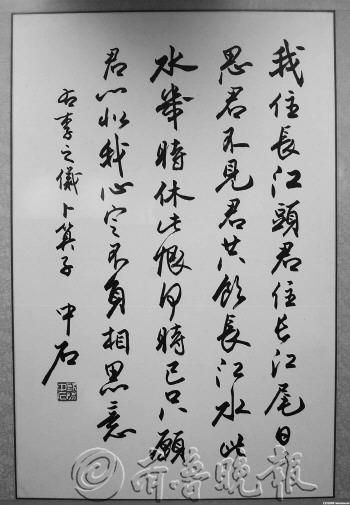 我住長江頭君住長江尾日
思君不見君共飲長江水此
水幾時休此恨何時已只願
君心似我心定不負相思意
右李之儀卜算子 中石
©齊魯晚報